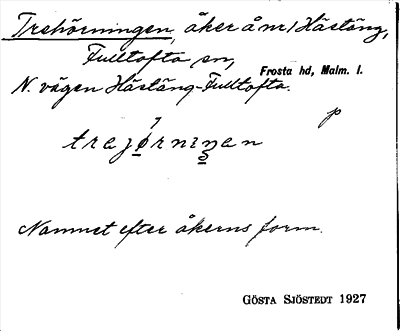 Trehörningen, åker å nr 1 Hästäng,
Fulltofta sn,
Frosta hd, Malm. l.
N. vägen Hästäng-Fulltofta.
p
trejørniŋen
Namnet efter åkerns form.
GÖSTA SJÖSTEDT 1927